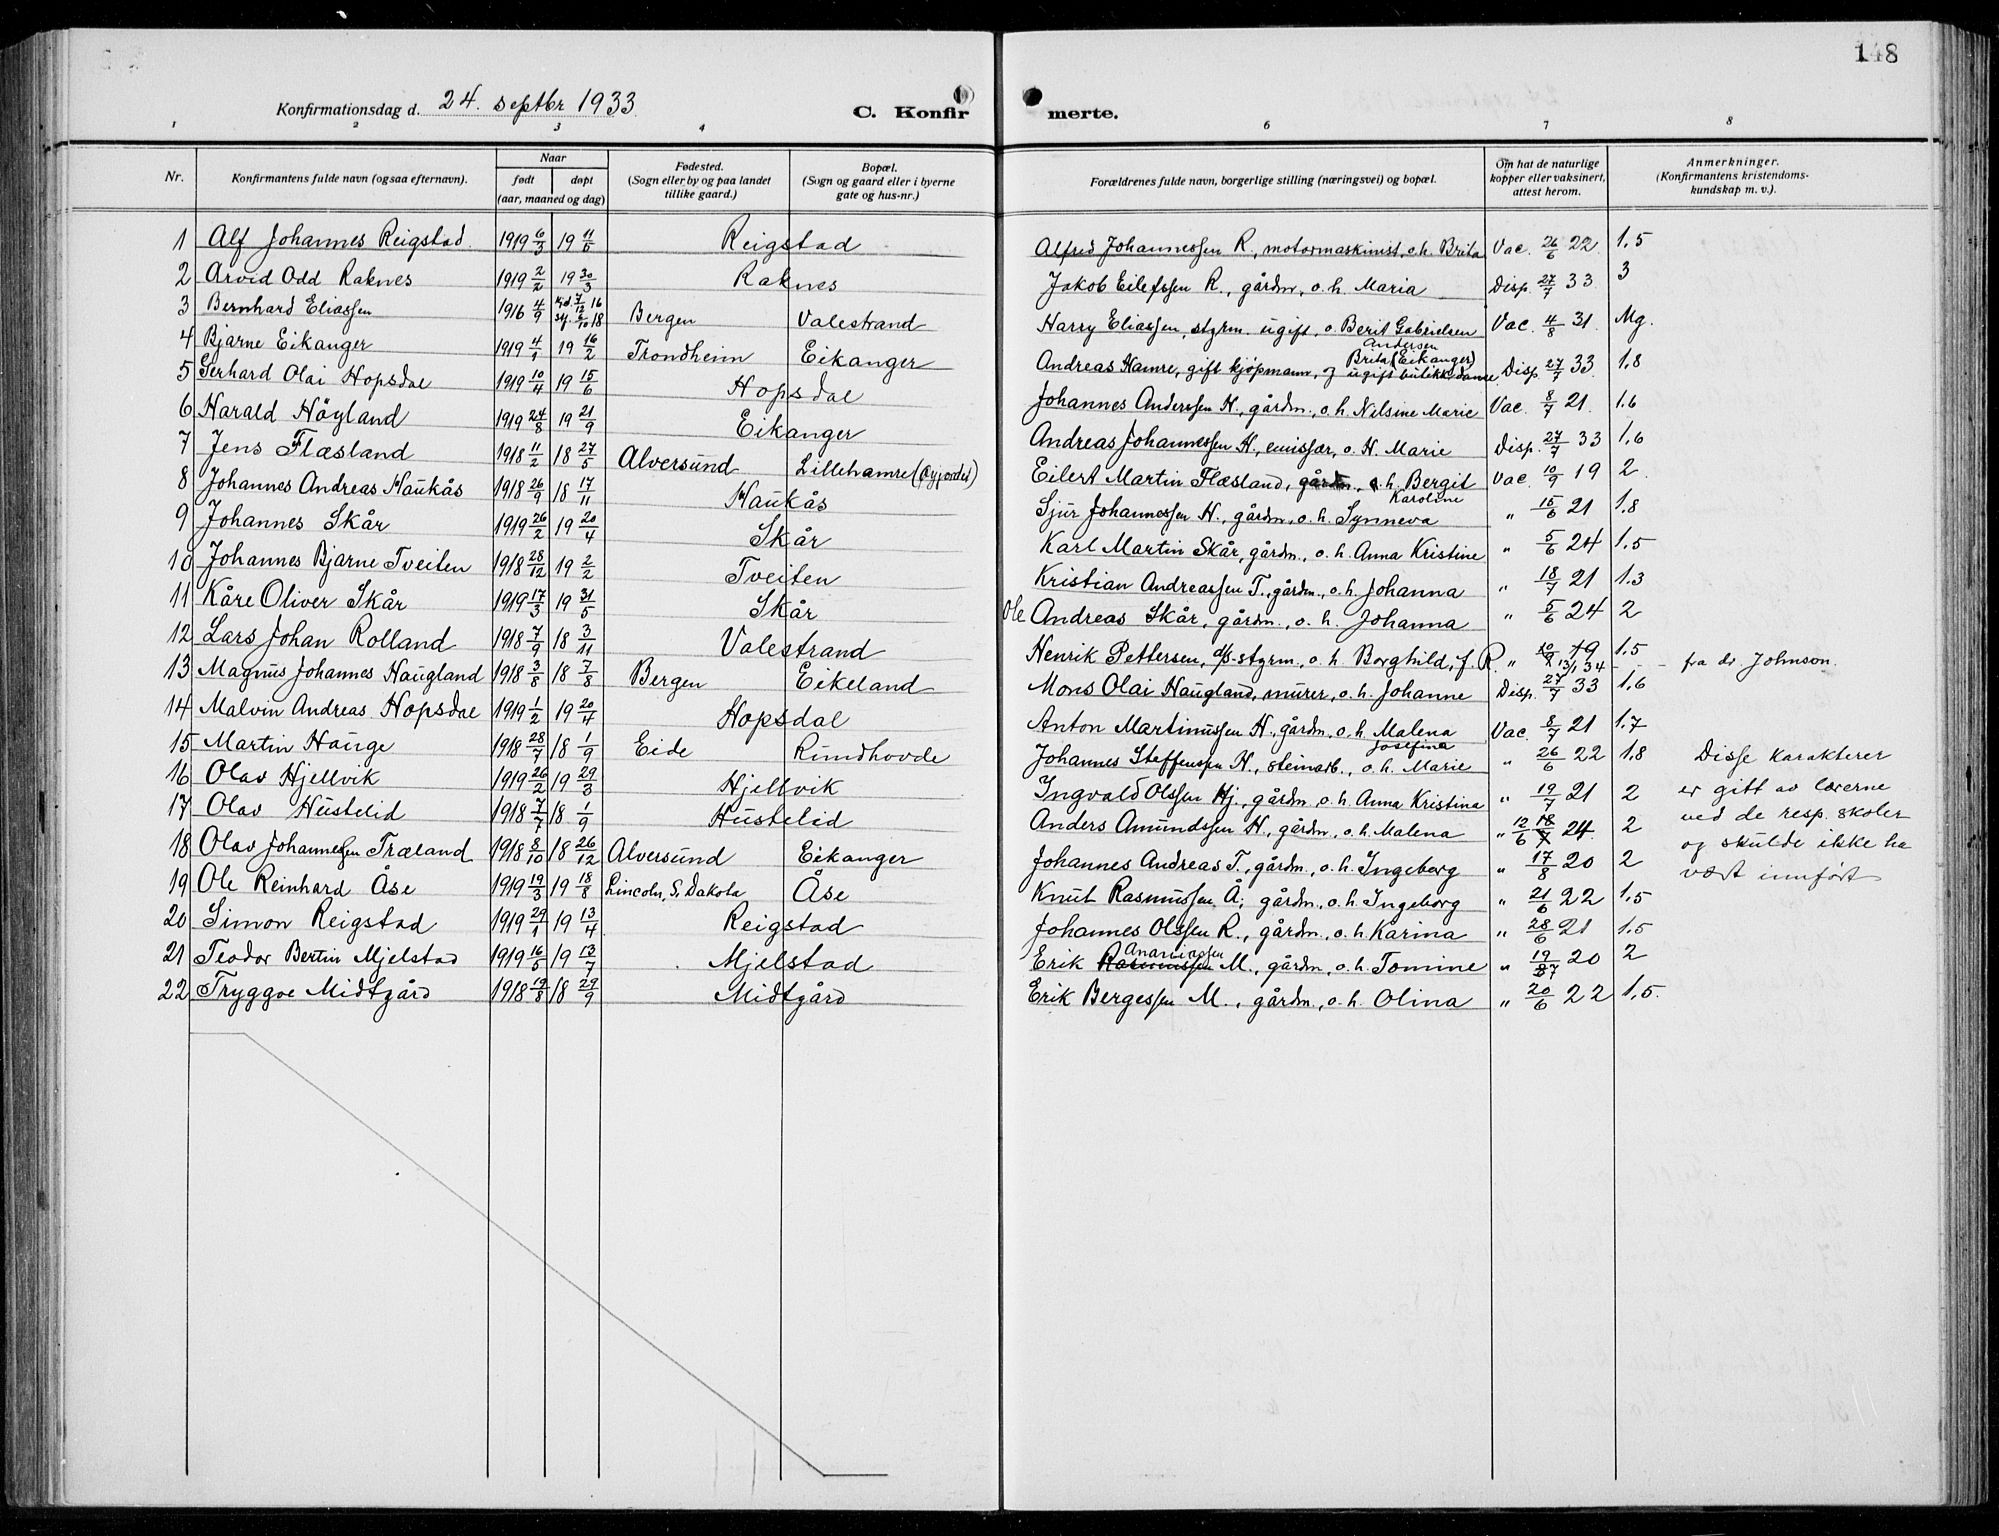 148
Konfirmationsdag d. 24. septbr 1933 C. Konfirmerte.
1 2 3 4 6 7 8
Nr. Konfirmantens fulde navn (ogsaa efternavn). Naar født døpt (aar, maaned og dag) Fødested. (Sogn eller by og paa landet tillike gaard.) Bopæl. (Sogn og gaard eller i byerne gate og hus-nr.) Forældrenes fulde navn, borgerlige stilling (næringsvei) og bopæl. Om hat de naturlige kopper eller vaksinert, attest herom. Anmerkninger. (Konfirmantens kristendomskundskap m. v.).
1 Alf Johannes Reigstad 1919 6/3 19 11/5 Reigstad Alfred Johannessen R., motormaskinist, o.h. Brita Vac. 26/6 22. 1.5
2 Arvid Odd Raknes 1919 2/2 19 30/3 Raknes Jakob Eilefssen R., gårdm., o.h. Maria Disp. 27/7 33. 3
3 Bernhard Eliassen 1916 4/9 7/12 16 6/10 18 Bergen Valestrand Harry Eliassen, styrm. ugift, o. Berit Gabrielsen Vac. 4/8 31. Mg.
4 Bjarne Eikanger 1919 4/1 19 16/2 Trondheim Eikanger Andreas Hamre, gift kjøpmann, og Brita Andersen (Eikanger) ugift butikkdame Disp. 27/7 33. 1.8
5 Gerhard Olai Hopsdal 1919 10/4 19 15/6 Hopsdal Johannes Anderssen H., gårdm., o.h. Nilsine Marie Vac. 8/7 21. 1.6
6 Harald Höyland 1919 24/8 19 21/9 Eikanger Andreas Johannessen H., emissær, o. H. Marie Disp. 27/7 33 1,6
7 Jens Flæsland 1918 11/2 18 27/5 Alversund Lillehamre Eilert Martin Flæsland, gårdm., o.h. Bergit Vac. 10/9 19 2.
8 Johannes Andreas Haukås 1918 26/9 18 17/11 Haukås Sjur Johannessen H., gårdm., o.h. Synneva Karoline " 15/6 21 1.8
9 Johannes Skår 1919 26/2 19 20/4 Skår Karl Martin Skår, gårdm., o.h. Anna Kristine " 5/6 24 1.5
10 Johannes Bjarne Tveiten 1918 28/12 19 2/2 Tveiten Kristian Andreassen T., gårdm., o.h. Johanna " 18/7 21 1.3
11 Kåre Oliver Skår 1919 17/3 19 31/5 Skår Ole Andreas Skår, gårdm., o. h. Johanna " 5/6 24 2
12 Lars Johan Rolland 1918 7/9 18 3/11 Valestrand Henrik Pettersen, d/s-styrm., o.h. Borghild, f. R. " 10/9 19 1.5
13/1 34 - - - fra dr Johnson.
13 Magnus Johannes Haugland 1918 3/8 18 7/8 Bergen Eikeland Mons Olai Haugland, murer, o.h. Johanne Disp. 27/7 33 1.6
14 Malvin Andreas Hopsdal 1919 1/2 19 20/4 Hopsdal Anton Martinussen H., gårdm., o.h. Malena Vac. 8/7 21 1.7
15 Martin Hauge 1918 28/7 18 1/9 Eide Rundhovde Johannes Steffenssen H., steinarb., o.h. Marie Josefina " 26/6 22 1.8
Disse karakterer er gitt av lærerne ved de resp. skoler og skulde ikke ha vært innført
16 Olav Hjellvik 1919 26/2 19 29/3 Hjellvik Ingvald Olssen Hj., gårdm., o.h. Anna Kristina " 19/7 21 2
17 Olav Hustelid 1918 7/7 18 1/9 Hustelid Anders Amundssen H., gårdm., o.h. Malena " 12/6 24. 2
18 Olav Johannessen Træland 1918 8/10 18 26/12 Alversund Eikanger Johannes Andreas T., gårdm., o.h. Ingeborg " 17/8 20 2
19 Ole Reinhard Åse 1919 19/3 19 18/8 Lincoln, S. Dakota Åse Knut Rasmussen Å., gårdm., o.h. Ingeborg " 21/6 22 1,5
20 Simon Reigstad 1919 29/1 19 13/4 Reigstad Johannes Olssen R., gårdm., o.h. Karina " 28/6 21 1.5
21 Teodor Bertin Mjelstad 1919 16/5 19 13/7 Mjelstad Erik Rasmussen M., gårdm., o.h. Tomine " 19/7 20 2
22 Tryggve Midtgård 1918 19/8 18 29/9 Midtgård Erik Bergessen M., gårdm., o.h. Olina " 20/6 22 1,5.